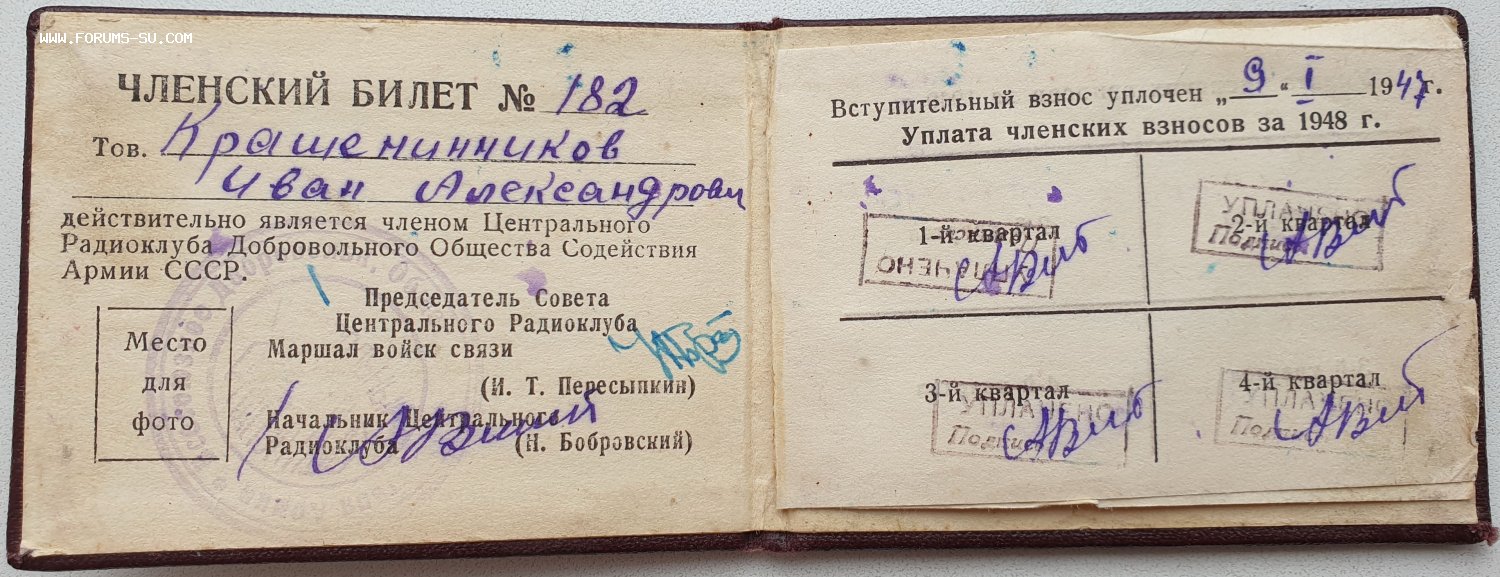 WWW.FORUMS-SU.COM
ЧЛЕНСКИЙ БИЛЕТ № 182
Тов. Крашенинников
Иван Александрович
действительно является членом Центрального
Радиоклуба Добровольного Общества Содействия
Армии СССР.
Председатель Совета
Центрального Радиоклуба
Маршал войск связи
(И. Т. Пересыпкин)
Начальник Центрального
Радиоклуба (Н. Бобровский)
Место
для
фото
Вступительный взнос уплочен „9“ I 1947г.
Уплата членских взносов за 1948 г.
1-й квартал
УПЛАЧЕНО
2-й квартал
УПЛАЧЕНО
Подпись
3-й квартал
УПЛАЧЕНО
Подпись
4-й квартал
УПЛАЧЕНО
Подпись